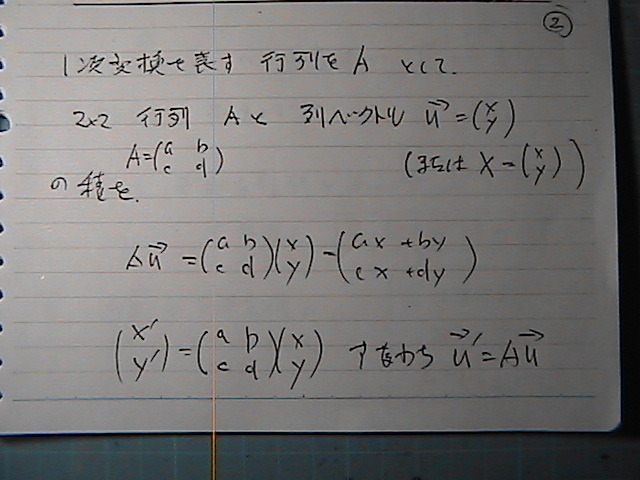 ②
1次変換を表す 行列を A として.
2×2 行列 Aと 列ベクトル u→ = (x y)
A = (a b c d) (または X = (x y))
の積を.
Au→ = (a b c d)(x y) = (ax + by cx + dy)
(x' y') = (a b c d)(x y) すなわち u→' = Au→